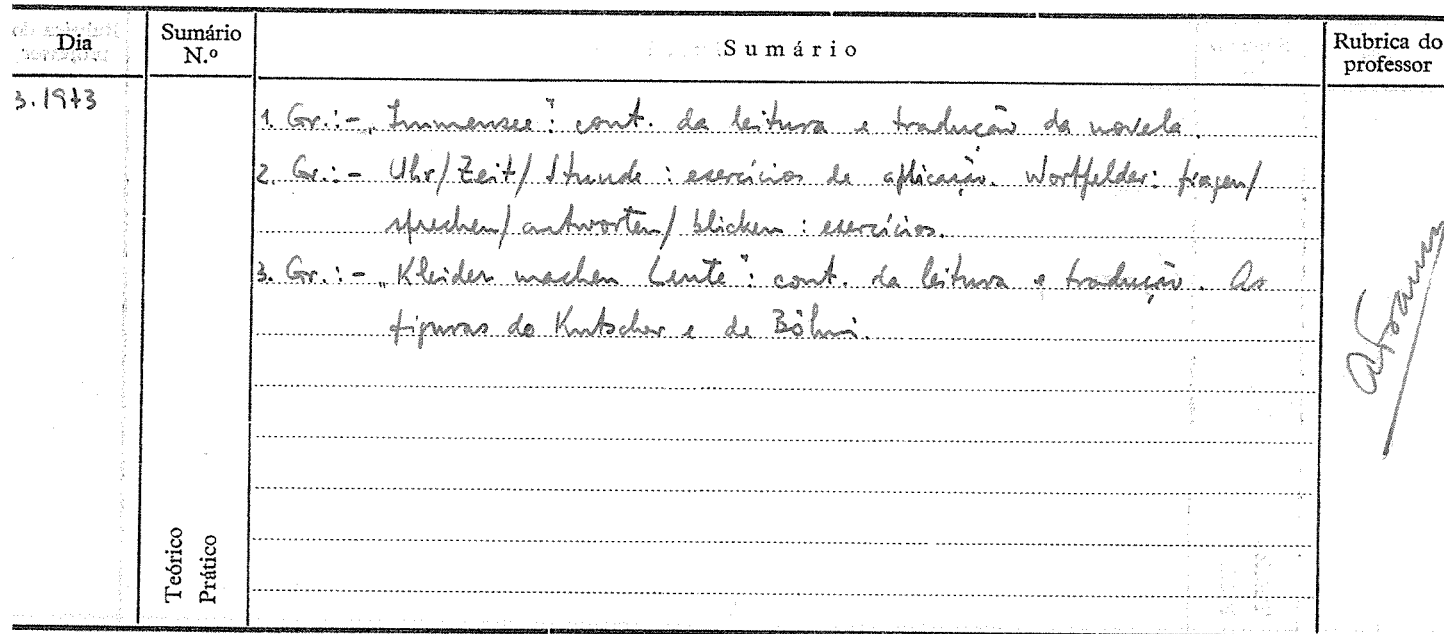 Dia
Sumário N.º
Sumário
Rubrica do professor
3.1973
1. Gr.:- „Immensee": cont. da leitura e tradução da novela.
2. Gr.:- Uhr/Zeit/Stunde: exercícios de aplicação. Wortfelder: fragen/
sprechen/antworten/blicken: exercícios.
3. Gr.:- „Kleider machen Leute": cont. da leitura e tradução. As
figuras do Kutscher e de Böhni.
Teórico
Prático